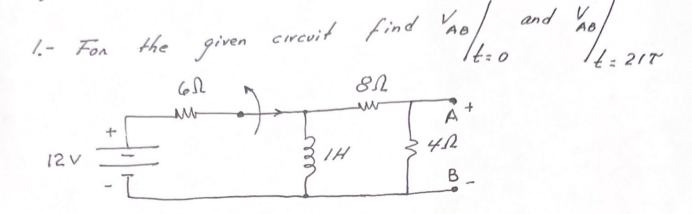 1.- For the given circuit find V_AB/t=0 and V_AB/t=21τ
6Ω 8Ω
A +
+
12V 1H 4Ω
B -
-